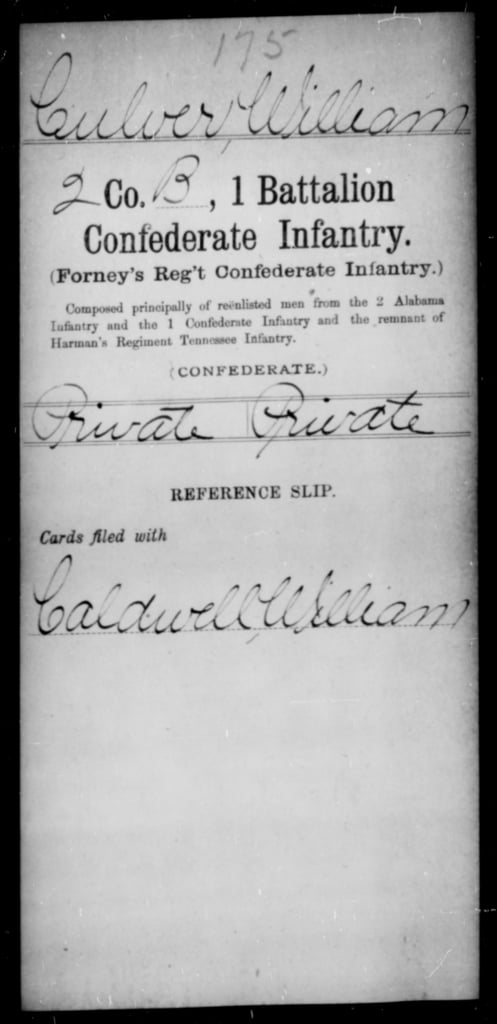 175
Culver, William
2 Co. B, 1 Battalion
Confederate Infantry.
(Forney's Reg't Confederate Infantry.)
Composed principally of reënlisted men from the 2 Alabama
Infantry and the 1 Confederate Infantry and the remnant of
Harman's Regiment Tennessee Infantry.
(CONFEDERATE.)
Private Private
REFERENCE SLIP.
Cards filed with
Caldwell, William